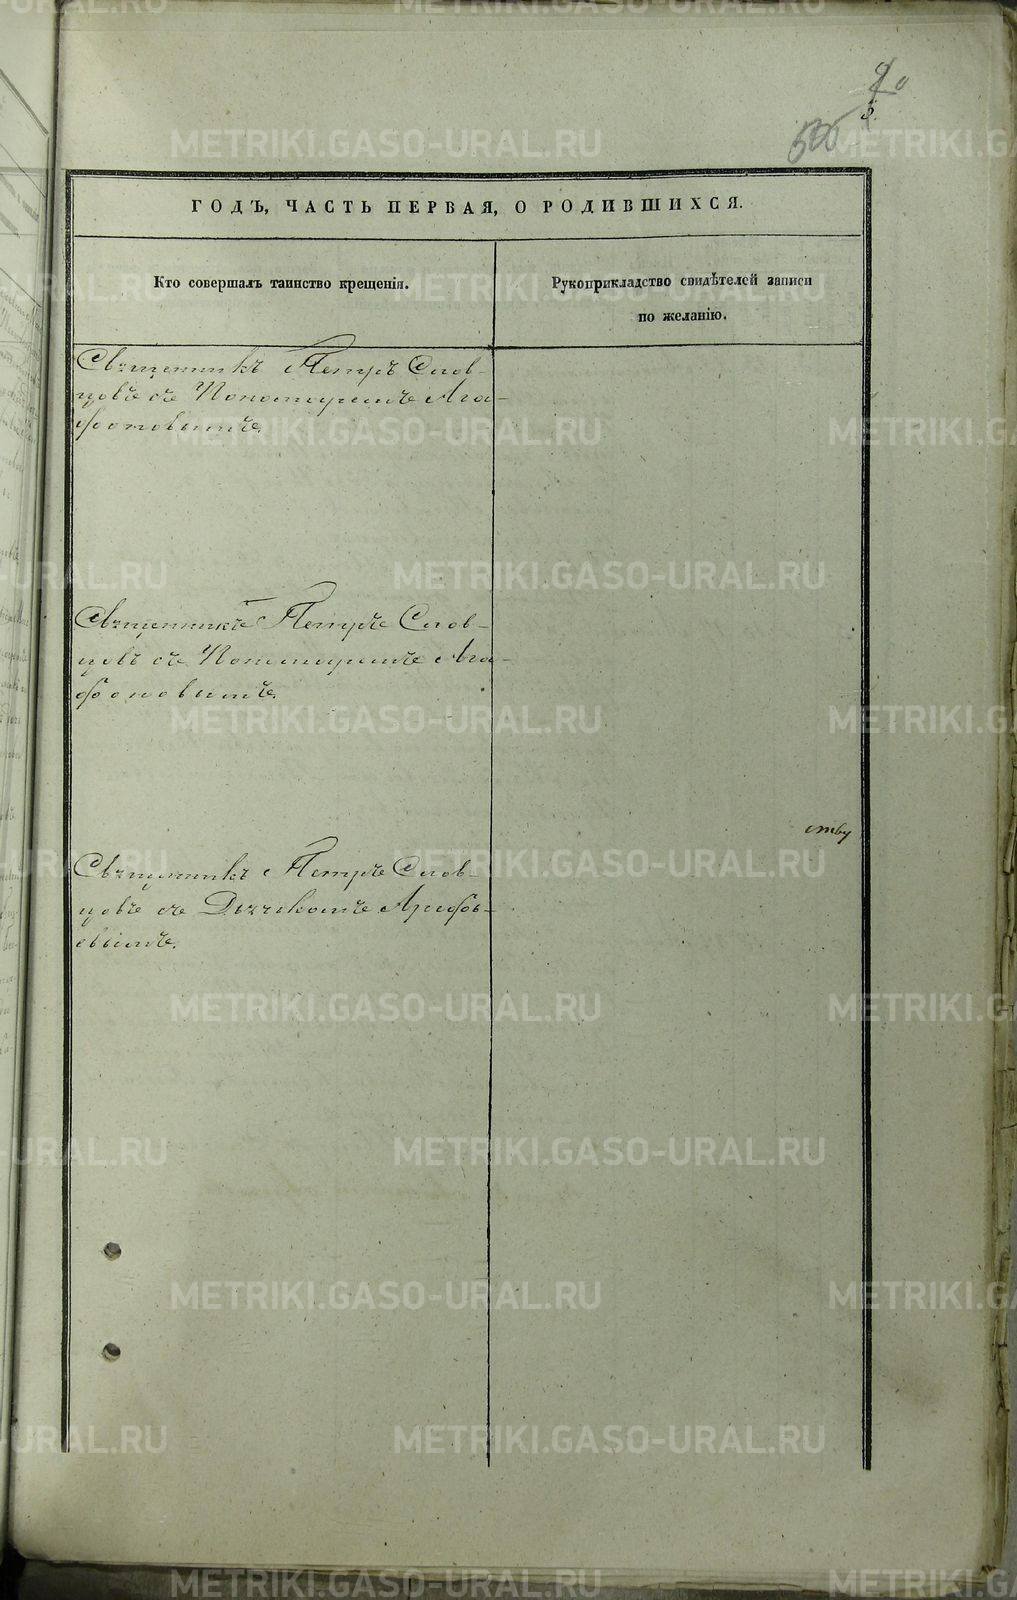 5.
ГОДЪ, ЧАСТЬ ПЕРВАЯ, О РОДИВШИХСЯ.
Кто совершалъ таинство крещенія.
Рукоприкладство свидѣтелей записи
по желанію.
Священникъ Петръ Слов-
цовъ съ Пономаремъ Ага-
фоновымъ.
Священникъ Петръ Слов-
цовъ съ Пономаремъ Ага-
фоновымъ.
ству
Священникъ Петръ Слов-
цовъ съ Дьячкомъ
METRIKI.GASO-URAL.RU